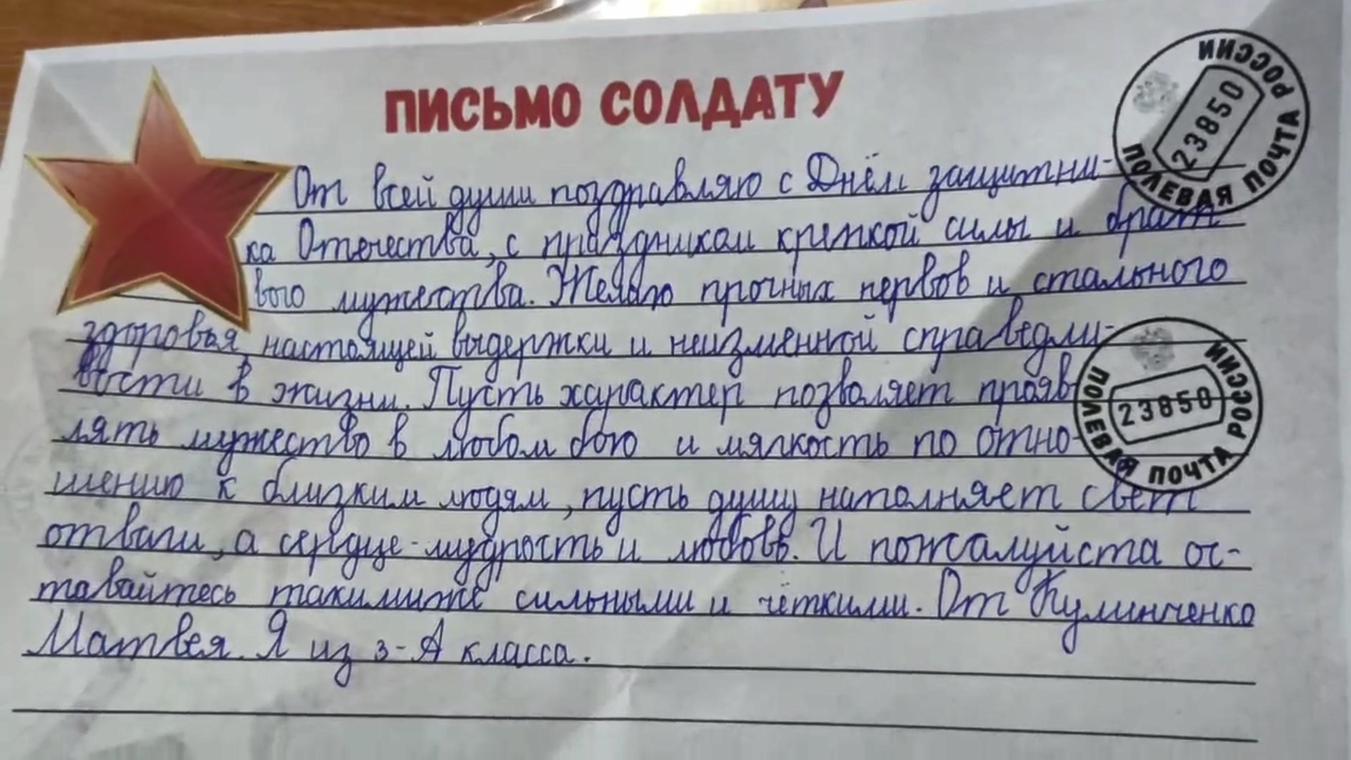 ПИСЬМО СОЛДАТУ
От всей души поздравляю с Днём защитни-
ка Отечества, с праздником крепкой силы и брат
вого мужества. Желаю прочных нервов и стального
здоровья, настоящей выдержки и неизменной справедли-
вости в жизни. Пусть характер позволяет прояв
лять мужество в любом бою и мягкость по отно-
шению к близким людям, пусть душу наполняет свет
отваги, а сердце - мудрость и любовь. И пожалуйста ос-
тавайтесь такимиже сильными и чёткими. От Кулинченко
Матвея. Я из 3-А класса.
23850
ПОЛЕВАЯ ПОЧТА РОССИИ
23850
ПОЛЕВАЯ ПОЧТА РОССИИ